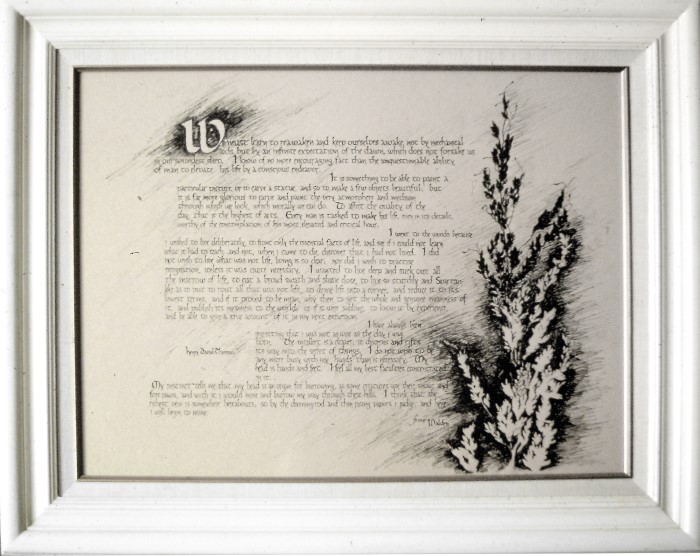 We must learn to reawaken and keep ourselves awake, not by mechanical
aids, but by an infinite expectation of the dawn, which does not forsake us
in our soundest sleep. I know of no more encouraging fact than the unquestionable ability
of man to elevate his life by a conscious endeavor.
It is something to be able to paint a
particular picture, or to carve a statue, and so to make a few objects beautiful; but
it is far more glorious to carve and paint the very atmosphere and medium
through which we look, which morally we can do. To affect the quality of the
day, that is the highest of arts. Every man is tasked to make his life, even in its details,
worthy of the contemplation of his most elevated and critical hour.
I went to the woods because
I wished to live deliberately, to front only the essential facts of life, and see if I could not learn
what it had to teach, and not, when I came to die, discover that I had not lived. I did
not wish to live what was not life, living is so dear; nor did I wish to practise
resignation, unless it was quite necessary. I wanted to live deep and suck out all
the marrow of life, to live so sturdily and Spartan-
like as to put to rout all that was not life, to cut a broad swath and shave close, to drive life into a corner, and reduce it to its
lowest terms, and, if it proved to be mean, why then to get the whole and genuine meanness of
it, and publish its meanness to the world; or if it were sublime, to know it by experience,
and be able to give a true account of it in my next excursion.
I have always been
regretting that I was not as wise as the day I was
born. The intellect is a cleaver; it discerns and rifts
its way into the secret of things. I do not wish to be
any more busy with my hands than is necessary. My
head is hands and feet. I feel all my best faculties concentrated
in it.
Henry David Thoreau
My instinct tells me that my head is an organ for burrowing, as some creatures use their snout and
fore paws, and with it I would mine and burrow my way through these hills. I think that the
richest vein is somewhere hereabouts; so by the divining rod and thin rising vapors I judge; and here
I will begin to mine.
from Walden